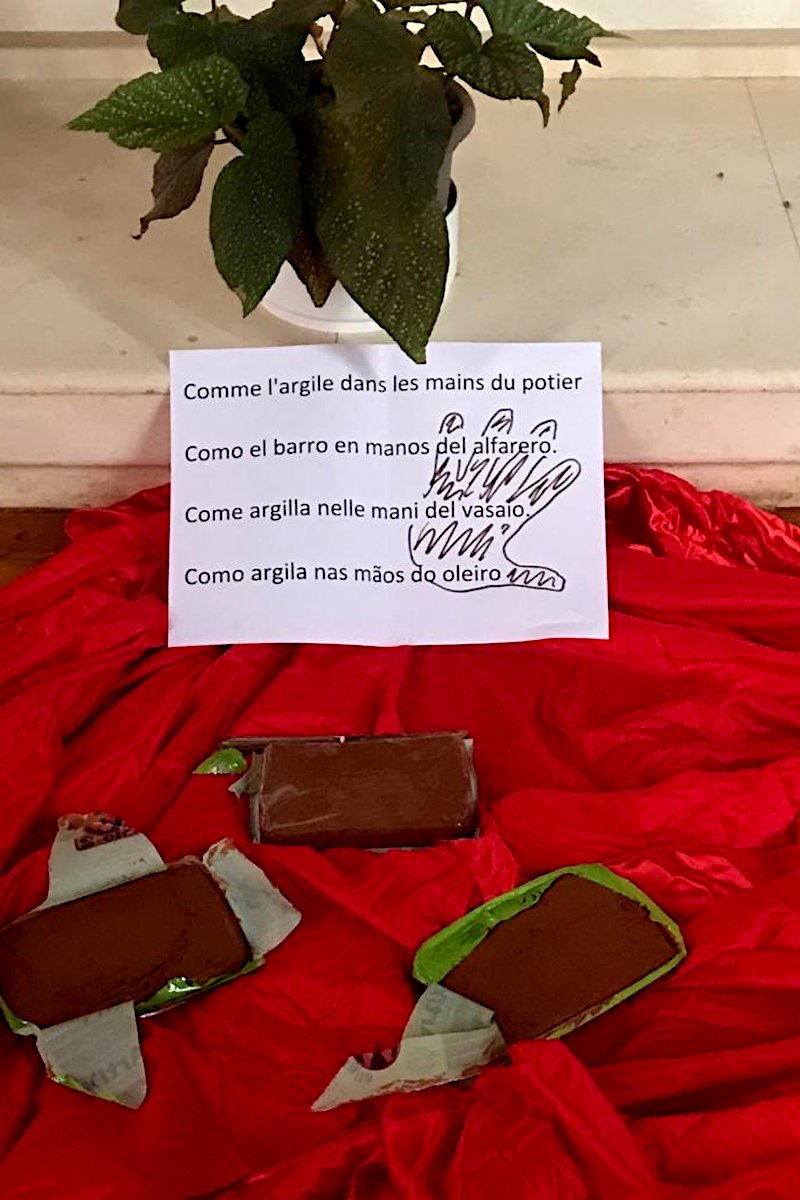 Comme l'argile dans les mains du potier
Como el barro en manos del alfarero.
Come argilla nelle mani del vasaio.
Como argila nas mãos do oleiro